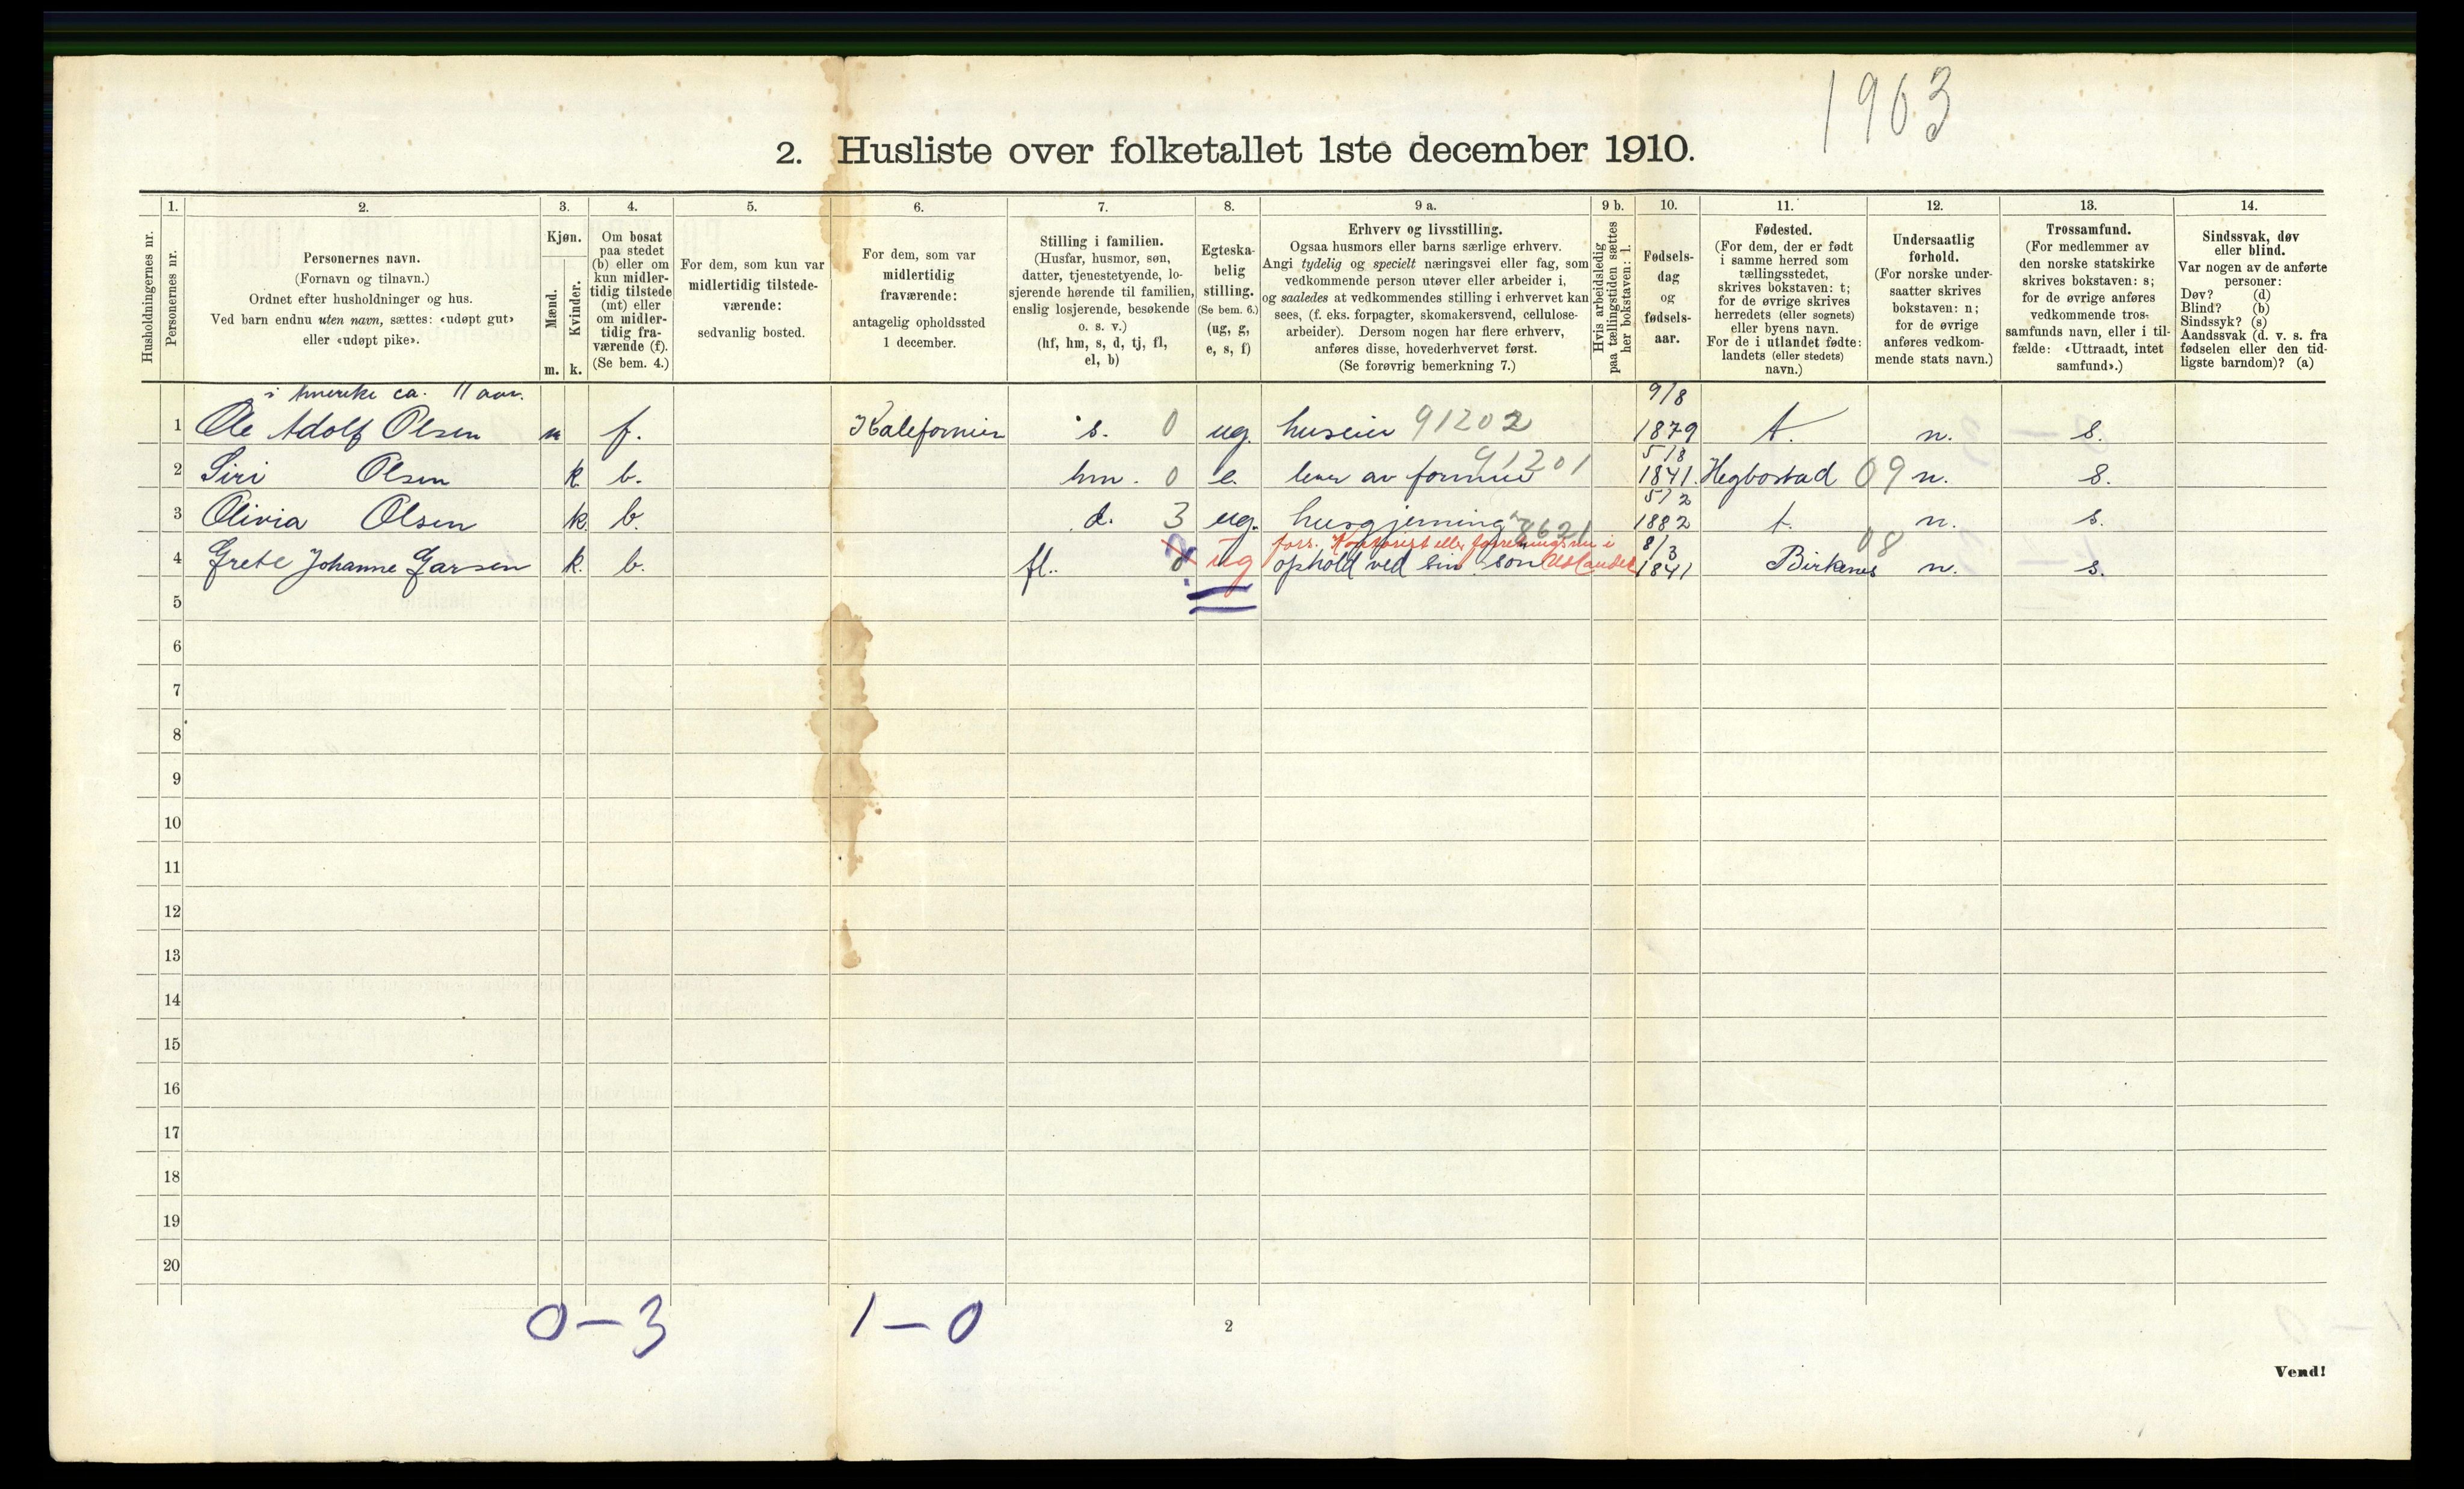 1963
2. Husliste over folketallet 1ste december 1910.
1. 2. 3. 4. 5. 6. 7. 8. 9 a. 9 b. 10. 11. 12. 13. 14.
Husholdningernes nr.
Personernes nr.
Personernes navn.
(Fornavn og tilnavn.)
Ordnet efter husholdninger og hus.
Ved barn endnu uten navn, sættes: «udøpt gut»
eller «udøpt pike».
Kjøn.
Mænd.
Kvinder.
m. k.
Om bosat
paa stedet
(b) eller om
kun midler-
tidig tilstede
(mt) eller
om midler-
tidig fra-
værende (f).
(Se bem. 4.)
For dem, som kun var
midlertidig tilstede-
værende:
sedvanlig bosted.
For dem, som var
midlertidig
fraværende:
antagelig opholdssted
1 december.
Stilling i familien.
(Husfar, husmor, søn,
datter, tjenestetyende, lo-
sjerende hørende til familien,
enslig losjerende, besøkende
o. s. v.)
(hf, hm, s, d, tj, fl,
el, b)
Egteska-
belig
stilling.
(Se bem. 6.)
(ug, g,
e, s, f)
Erhverv og livsstilling.
Ogsaa husmors eller barns særlige erhverv.
Angi tydelig og specielt næringsvei eller fag, som
vedkommende person utøver eller arbeider i,
og saaledes at vedkommendes stilling i erhvervet kan
sees, (f. eks. forpagter, skomakersvend, cellulose-
arbeider). Dersom nogen har flere erhverv,
anføres disse, hovederhvervet først.
(Se forøvrig bemerkning 7.)
Hvis arbeidsledig
paa tællingstiden sættes
her bokstaven: l.
Fødsels-
dag
og
fødsels-
aar.
Fødested.
(For dem, der er født
i samme herred som
tællingsstedet,
skrives bokstaven: t;
for de øvrige skrives
herredets (eller sognets)
eller byens navn.
For de i utlandet fødte:
landets (eller stedets)
navn.)
Undersaatlig
forhold.
(For norske under-
saatter skrives
bokstaven: n;
for de øvrige
anføres vedkom-
mende stats navn.)
Trossamfund.
(For medlemmer av
den norske statskirke
skrives bokstaven: s;
for de øvrige anføres
vedkommende tros-
samfunds navn, eller i til-
fælde: «Uttraadt, intet
samfund».)
Sindssvak, døv
eller blind.
Var nogen av de anførte
personer:
Døv? (d)
Blind? (b)
Sindssyk? (s)
Aandssvak (d. v. s. fra
fødselen eller den tid-
ligste barndom)? (a)
i Amerike ca. 11 aar. 9/8
1 Ole Adolf Olsen m f. Kalefornien s. 0 ug. huseier 91202 1879 t. n. s.
91201 5/8
2 Siri Olsen k b. hm. 0 e. lever av formue 1841. Hegbostad 09 n. s.
5/2
3 Olivia Olsen k. b. d. 3 ug. husgjerning 8621 1882 t. n. s.
fors. Kontorist eller forretningsm i 8/3 08
4 Grete Johanne Garsen k. b. fl. 0 ug ophold ved sin søn Utlandet 1841 Birkenes n. s.
5
6
7
8
9
10
11
12
13
14
15
16
17
18
19
20
0 – 3 1 – 0
2
Vend!